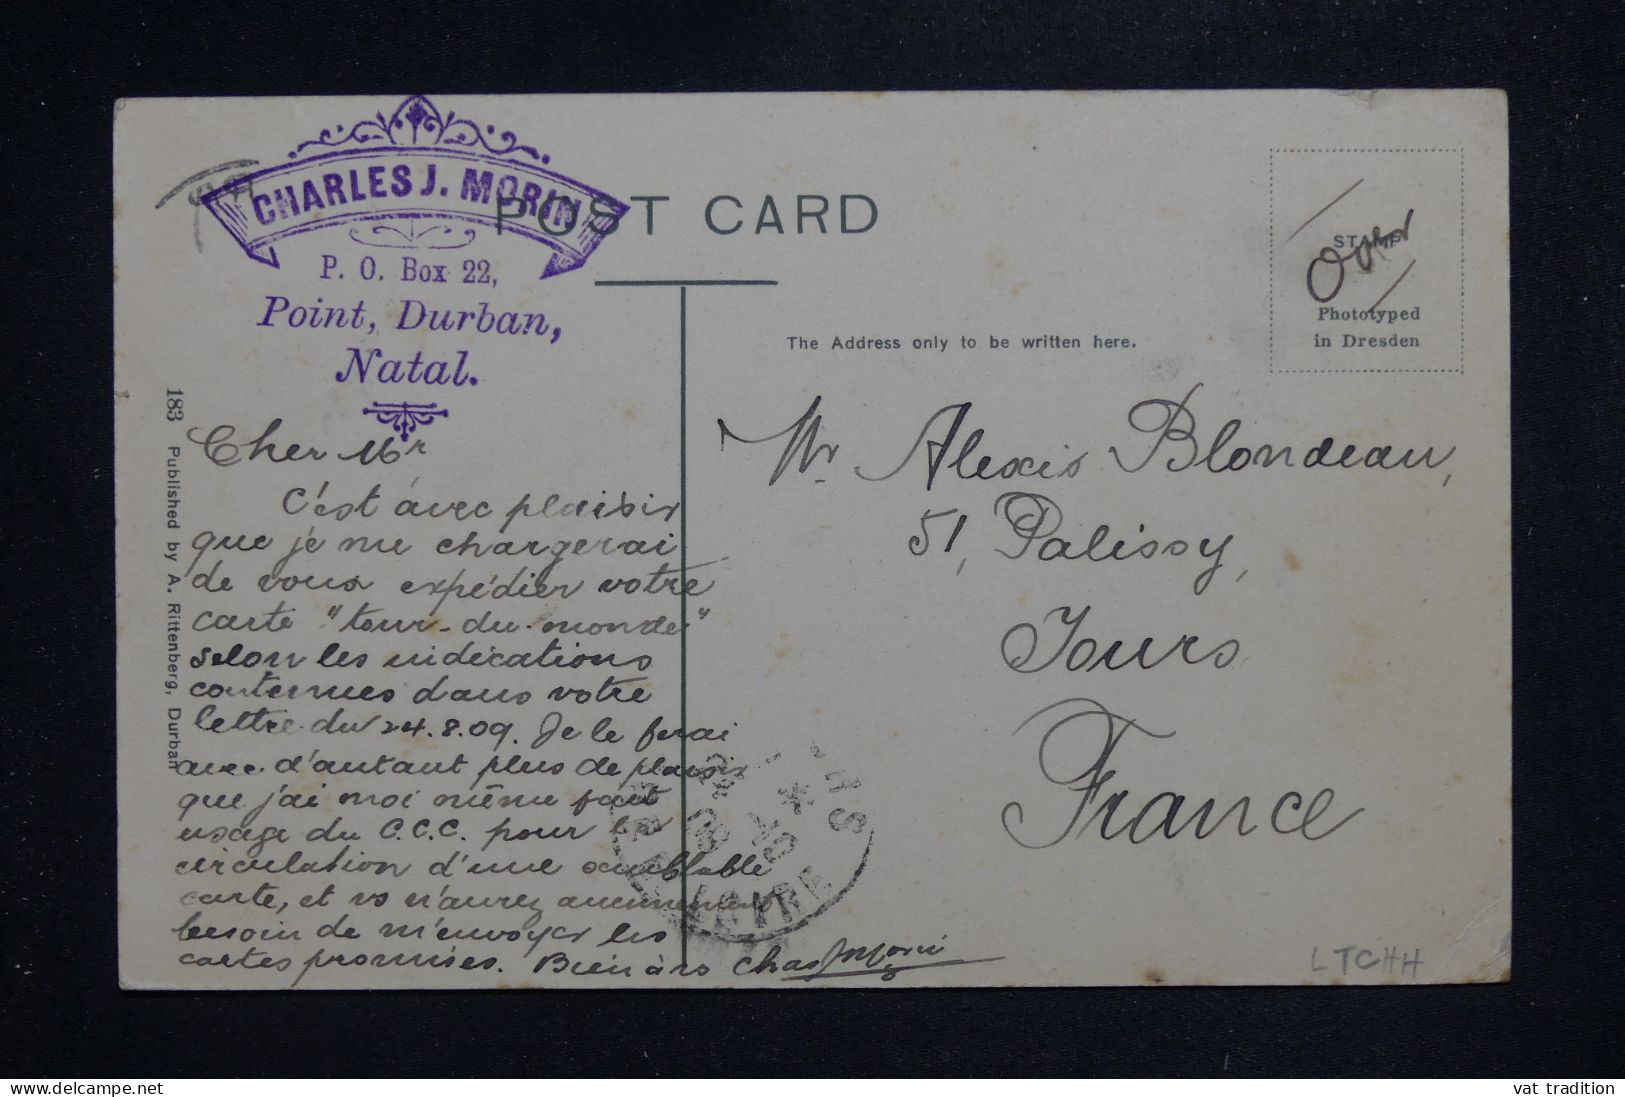 CHARLES J. MORIN
P. O. Box 22,
Point, Durban,
Natal.
POST CARD
STAMP
Over
Phototyped
in Dresden
The Address only to be written here.
183 Published by A. Rittenberg, Durban
Cher Mr
C'est avec plaisir
que je me chargerai
de vous expédier votre
carte "tour-du-monde"
selon les indications
contenues dans votre
lettre du 24.8.09. Je le ferai
avec d'autant plus de plaisir
que j'ai moi même fait
usage du C.C.C. pour la
circulation d'une semblable
carte, et vs n'aurez aucunement
besoin de m'envoyer les
cartes promises. Bien à vs Chas J Morin
Mr. Alexis Blondeau,
51, Palissy,
Tours
France
LOIRE
LTCHH
delcampe.net
vat tradition